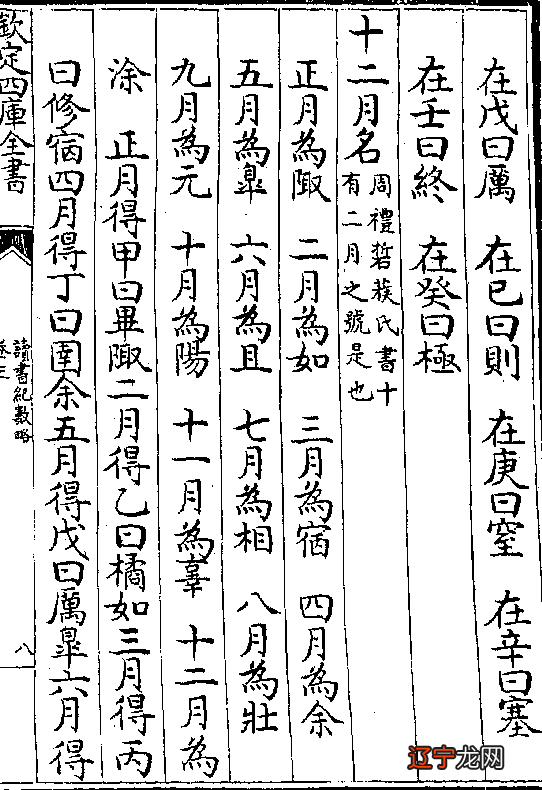 在戊曰厲　在已曰則　在庚曰窒　在辛曰塞
在壬曰終　在癸曰極
十二月名
周禮硩蔟氏書十
有二月之號是也
正月為陬　二月為如　三月為寎　四月為余
五月為臯　六月為且　七月為相　八月為壯
九月為元　十月為陽　十一月為辜　十二月為
涂　正月得甲曰畢陬二月得乙曰橘如三月得丙
曰修寎四月得丁曰圉余五月得戊曰厲臯六月得
欽定四庫全書
讀書紀數略
卷三
八
辽宁龙网